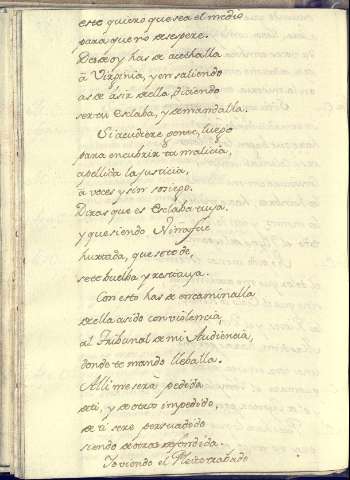 este quiero que sea el medio
para que no desespere.
Desde oy has de acechalla
à Virginia, y en saliendo
as de àsir della, diciendo
ser tu Esclaba, y demandalla.
Si acudiere gente, luego
para encubrir tu malicia,
apellida la justicia,
à voces y sin sosiego.
Diras que es Esclaba tuya.
y que siendo Niña fue
hurtada, que se te dè,
se te buelba y restituya.
Con esto has de encaminalla
della asido con violencia,
al Tribunal de mi Audiencia,
donde te mando lleballa.
Alli me serà pedida
de ti, y de otros impedido,
de ti serè persuadido
siendo de otros defendida.
Yo viendo el Pleito trabado